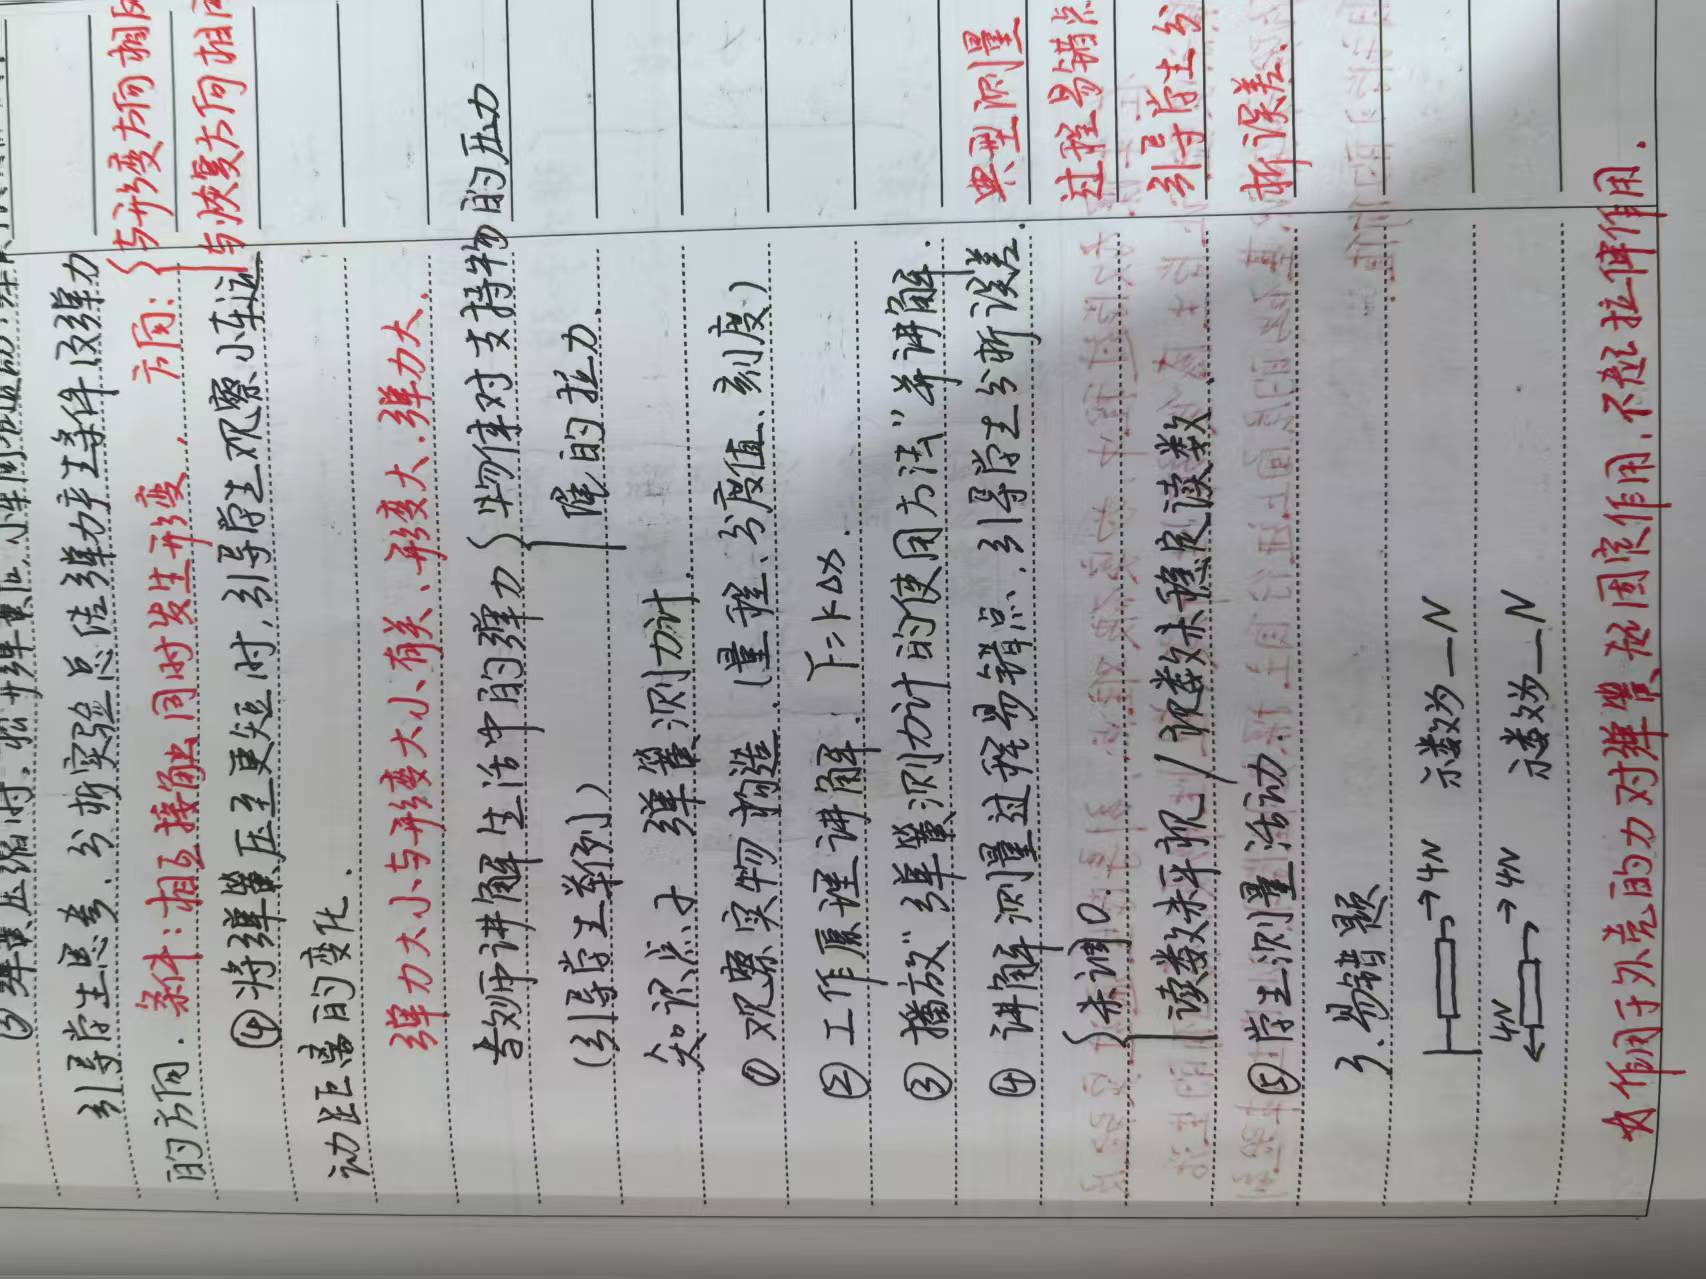 ③弹簧压缩时,松开弹簧后,小车向右运动,
引导学生思考、分析实验总结弹力产生条件以及弹力
的方向. 条件:相互接触同时发生形变, 方向:{与形变方向相反
与恢复方向相同
④将弹簧压至更短时,引导学生观察小车运
动距离的变化.
弹力大小与形变大小有关、形变大.弹力大.
教师讲解生活中的弹力{物体对支持物的压力
(引导学生举例) 绳的拉力.
知识点2 弹簧测力计.
①观察实物构造.(量程、分度值、刻度)
②工作原理讲解. F=kΔx.
③播放“弹簧测力计的使用方法”并讲解.
④讲解测量过程易错点,引导学生分析误差.
{未调0.
读数未平视/示数未稳定读数.
⑤学生测量活动.
3.易错题
→4N 示数为__N
4N→4N 示数为__N
作用于外壳的力对弹簧起固定作用,不起拉伸作用.
典型测量
过程易错点
引导学生分
析误差.